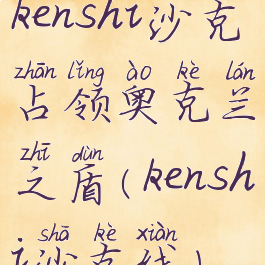 kenshi沙克
zhān lǐng ào kè lán
占领奥克兰
zhī dùn
之盾(kensh
shā kè xiàn
i沙克线)